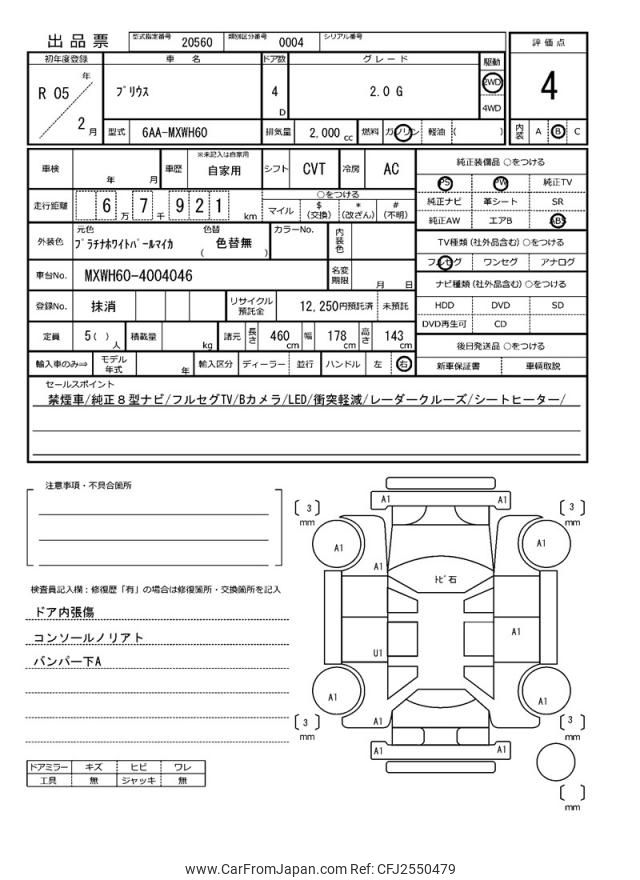 出品票 型式指定番号 20560 類別区分番号 0004 シリアル番号
初年度登録 車名 ドア数 グレード 駆動 評価点
R 05 年 2 月
ﾌﾟﾘｳｽ 4 D 2.0 G 2WD 4WD 4
型式 6AA-MXWH60 排気量 2,000 cc 燃料 ガソリン 軽油 ( ) 内装 A B C
車検 年 月 車歴 ※未記入は自家用 自家用 シフト CVT 冷房 AC
走行距離 6 万 7 千 9 2 1 km
○をつける
マイル $ (交換) * (改ざん) # (不明)
外装色 元色 ﾌﾟﾗﾁﾅﾎﾜｲﾄﾊﾟｰﾙﾏｲｶ 色替 ( 色替無 ) カラーNo. 内装色
車台No. MXWH60-4004046 名変期限 月 日
登録No. 抹消 リサイクル預託金 12,250円預託済 未預託
定員 5 ( ) 人 積載量 kg 諸元 長さ 460 cm 幅 178 cm 高さ 143 cm
輸入車のみ⇒ モデル年式 年 輸入区分 ディーラー 並行 ハンドル 左 右
純正装備品 ○をつける
PS PW 純正TV
純正ナビ 革シート SR
純正AW エアB ABS
TV種類 (社外品含む) ○をつける
フルセグ ワンセグ アナログ
ナビ種類 (社外品含む) ○をつける
HDD DVD SD
DVD再生可 CD
後日発送品 ○をつける
新車保証書 車輌取説
セールスポイント
禁煙車/純正８型ナビ/フルセグTV/Bカメラ/LED/衝突軽減/レーダークルーズ/シートヒーター/
注意事項・不具合箇所
検査員記入欄：修復歴「有」の場合は修復箇所・交換箇所を記入
ドア内張傷
コンソールノリアト
バンパー下A
ドアミラー キズ ヒビ ワレ
工具 無 ジャッキ 無
A1 A1
[ 3 ] mm [ 3 ] mm
A1 A1
A1
ﾄﾋﾞ石
A1
U1
A1 A1
[ 3 ] mm [ 3 ] mm
A1
A1 A1
[ ] mm
www.CarFromJapan.com Ref: CFJ2550479